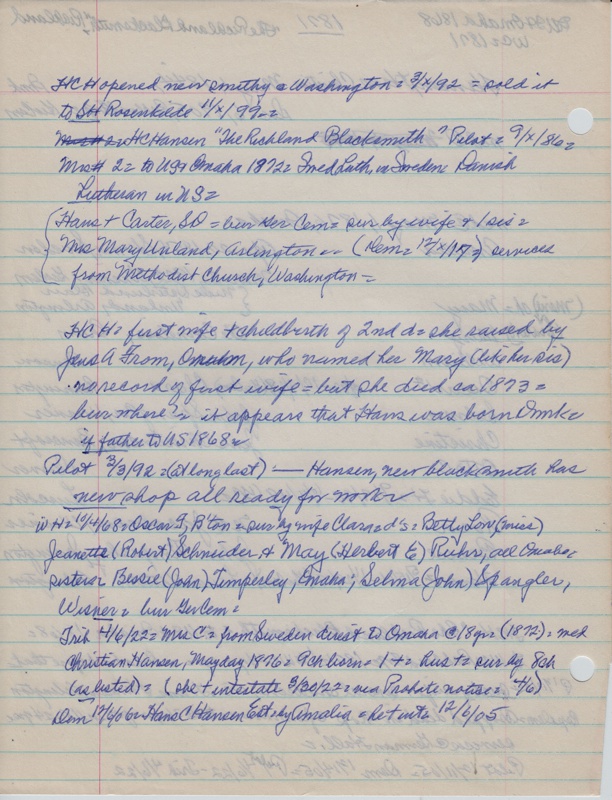 HCH opened new smithy @ Washington = 3/x/92 = sold it
to SH Rosenkilde 11/x/99 =
HCHansen "The Richland Blacksmith" Pilot = 9/x/86 =
Mrs H 2 = to US @ Omaha 1872 = Fred Luth, in Sweden Danish
Lutheran in US =
Hans + Carter, SD = bur Ger Cem = sur by wife + 1 sis =
Mrs Mary Unland, Arlington = (Dem = 12/x/17 =) services
from Methodist Church, Washington =
HCH = first wife + childbirth of 2nd d = she raised by
Jens A From, Omaha, who named her Mary (like her sis)
no record of first wife = but she died ca 1873 =
bur where? = it appears that Hans was born Dmk
if father to US 1868 =
Pilot 3/3/92 = (at long last) — Hansen, new blacksmith has
new shop all ready for work
WH = 10/4/68 = Oscar G, B'ton = sur by wife Clara = d's = Betty Lou (miss)
Jeanette (Robert) Schnieder + May (Herbert E) Ruhr, all Omaha =
sisters Bessie (John) Timperley, Omaha; Selma (John) Spangler,
Wisner = bur Ger Cem =
Trib 4/6/22 = Mrs C = from Sweden direct to Omaha @ 18 yr = (1872) = med
Christian Hansen, May day 1876 = 9 ch born = 1 + = Hus + = sur by 8 ch
(as listed) = (she + intestate 3/30/22 = via Probate notice = 4/6)
Dem 12/6/06 = Hans C Hansen Est, by Amalia = he + 12/6/05